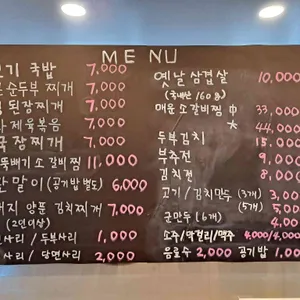 MENU
고기 국밥 7,000
순두부 찌개 7,000
된장찌개 7,000
제육볶음 7,000
국 장찌개 7,000
뚝배기 소갈비찜 11,000
말이 (공기밥 별도) 6,000
돼지 양푼 김치찌개 7,000
(2인이상)
사리 / 두부사리 1,000
사리 / 당면사리 2,000
옛날 삼겹살 10,000
(국내산 160g)
매운 소갈비찜 中 33,000
大 44,000
두부김치 15,000
부추전 9,000
김치전 8,000
고기 / 김치만두 (3개) 3,000
(5개) 5,00
군만두 (6개) 4,00
소주/막걸리/맥주 4,000/4,000
음료수 2,000 공기밥 1,00